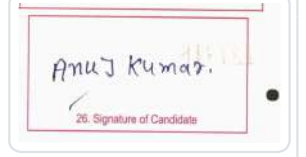 Anuj Kumar.
26. Signature of Candidate